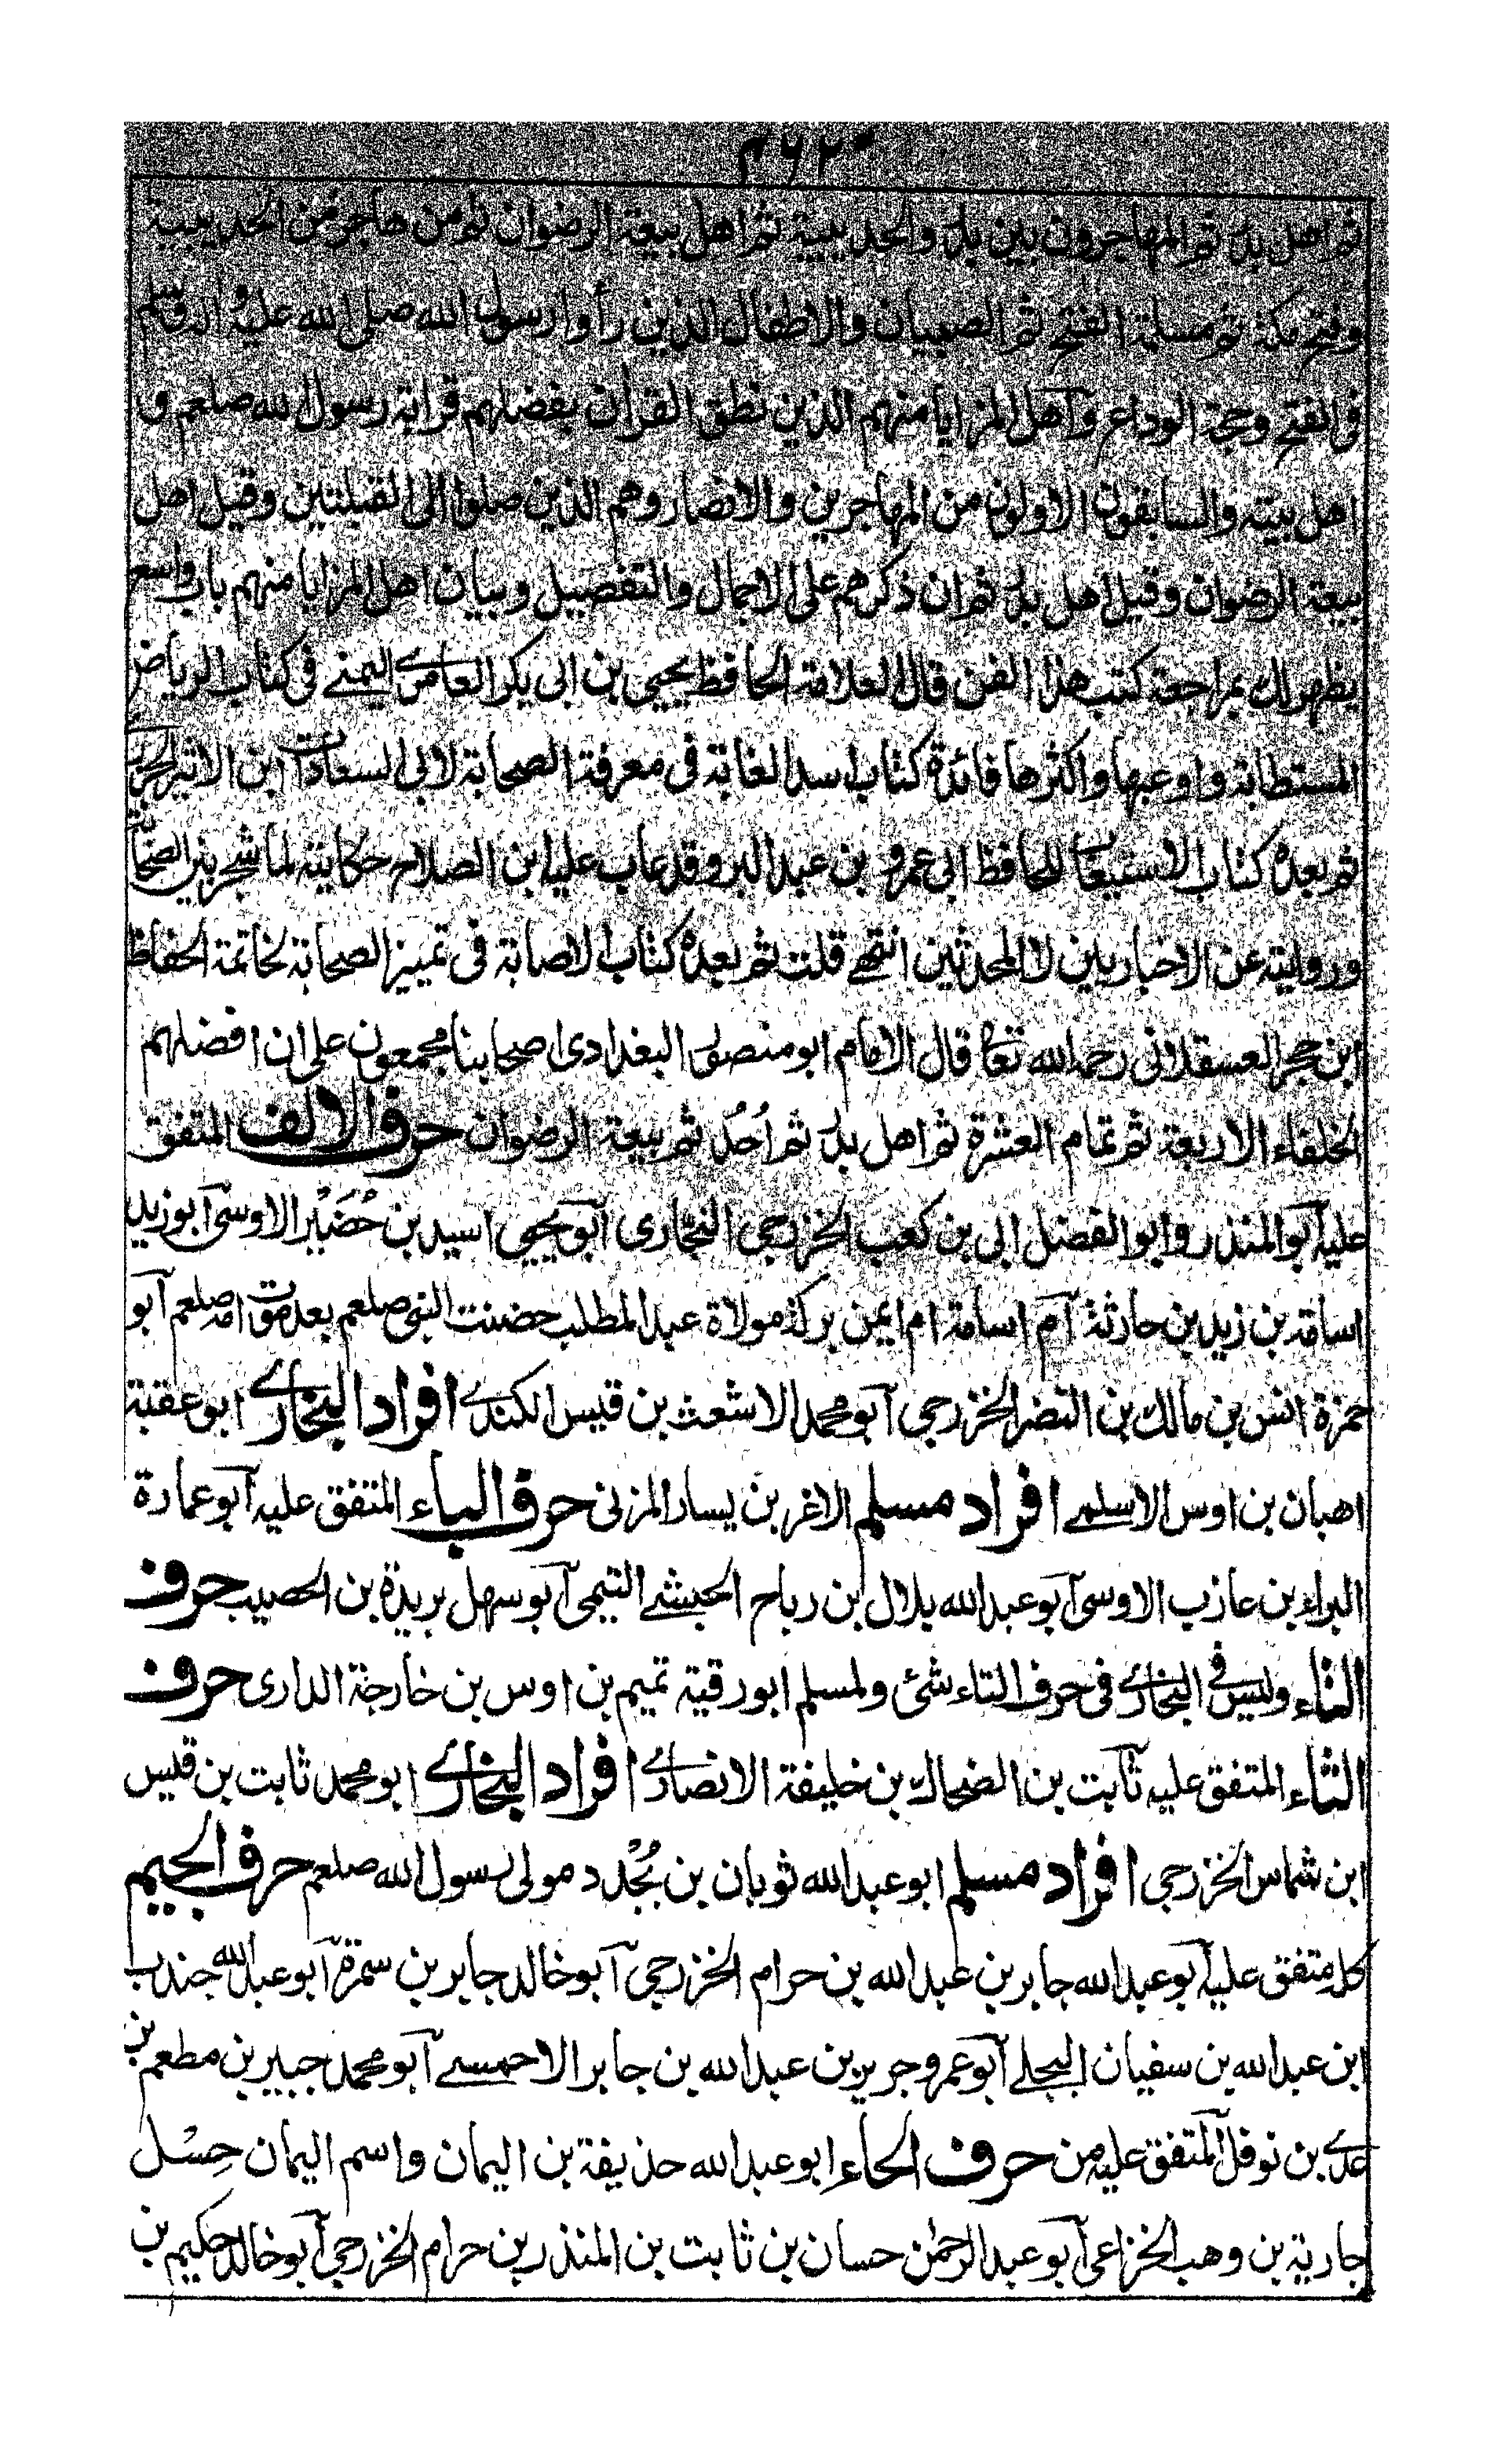 ثم اهل بدر ثم المهاجرون بين بدر والحديبية ثم اهل بيعة الرضوان ثم من هاجر من الحديبية
وفتح مكة ثم مسلمة الفتح ثم الصبيان والاطفال الذين رأوا رسول الله صلى الله عليه واله وسلم
فى الفتح وحجة الوداع وآهل المزايا منهم الذين نطق القرآن بفضلهم قرابة رسول الله صلعم و
اهل بيته والسابقون الاولون من المهاجرين والانصار وهم الذين صلوا الى القبلتين وقيل اهل
بيعة الرضوان وقيل اهل بدر ثم ان ذكرهم على الاجمال والتفصيل وبيان اهل المزايا منهم باب واسع
يظهر لك بمراجعة كتب هذا الفن قال العلامة الحافظ يحيى بن ابى بكر العامرى اليمنے فى كتاب الرياض
المستطابة واوعبها واكثرها فائدة كتاب اسد الغابة فى معرفة الصحابة لابى السعادات ابن الاثير الجزرى
ثم بعده كتاب الاستيعاب للحافظ ابى عمرو بن عبد البر وقد عاب عليه ابن الصلاح حكايته لما شجر بين الصحابة
وروايته عن الاخباريين لا المحدثين انتهے قلت ثم بعده كتاب الاصابة فى تمييز الصحابة لخاتمة الحفاظ
ابن حجر العسقلانى رحمه الله تعا قال الامام ابو منصور البغدادى اصحابنا مجمعون على ان افضلهم
الخلفاء الاربعة ثم تمام العشرة ثم اهل بدر ثم اُحُد ثم بيعة الرضوان حرف الالف المتفق
عليه آبو المنذر وابو الفضل ابى بن كعب الخزرجى النجارى آبو يحيى اسيد بن حُضَيْر الاوسى آبو زيد
اسامة بن زيد بن حارثة آم اسامة ام ايمن بركة مولاة عبد المطلب حضنت النبى صلعم بعد موت امه صلعم آبو
حمزة انس بن مالك بن النضر الخزرجى آبو محمد الاشعث بن قيس الكندے افراد البخارے ابو عقبة
اهبان بن اوس الاسلمے افراد مسلم الاغر بن يسار المزنى حرف الباء المتفق عليه آبو عمارة
البراء بن عازب الاوسى آبو عبد الله بلال بن رباح الحبشے التيمى آبو سهل بريدة بن الحصيب حرف
التاء وليس فى البخارے فى حرف التاء شئ ولمسلم ابو رقية تميم بن اوس بن خارجة الدارى حرف
الثاء المتفق عليه ثآبت بن الضحاك بن خليفة الانصارے افراد البخارے ابو محمد ثابت بن قيس
ابن شماس الخزرجى افراد مسلم ابو عبد الله ثوبان بن بُجْدد مولى رسول الله صلعم حرف الجيم
كله متفق عليه آبو عبد الله جابر بن عبد الله بن حرام الخزرجى آبو خالد جابر بن سمرة آبو عبد الله جندب
ابن عبد الله بن سفيان البجلے آبو عمرو جرير بن عبد الله بن جابر الاحمسے آبو محمد جبير بن مطعم بن
عدے بن نوفل آلمتفق عليه من حرف الحاء ابو عبد الله حذيفة بن اليمان واسم اليمان حِسْل
جارية بن وهب الخزاعى آبو عبد الرحمٰن حسان بن ثابت بن المنذر بن حرام الخزرجى آبو خالد حكيم بن